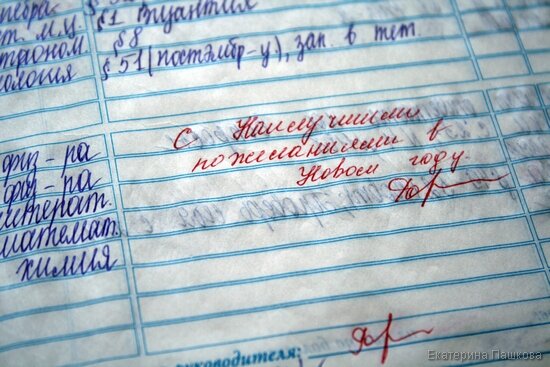 §1 Византия
т. м.ц.
§8
троном.
§51 (постэмбр-у), зап. в тет.
ология
С Наилучшими
пожеланиями в
Новом году.
физ-ра
физ-ра
литерат.
математ.
химия
руководителя:
Екатерина Пашкова